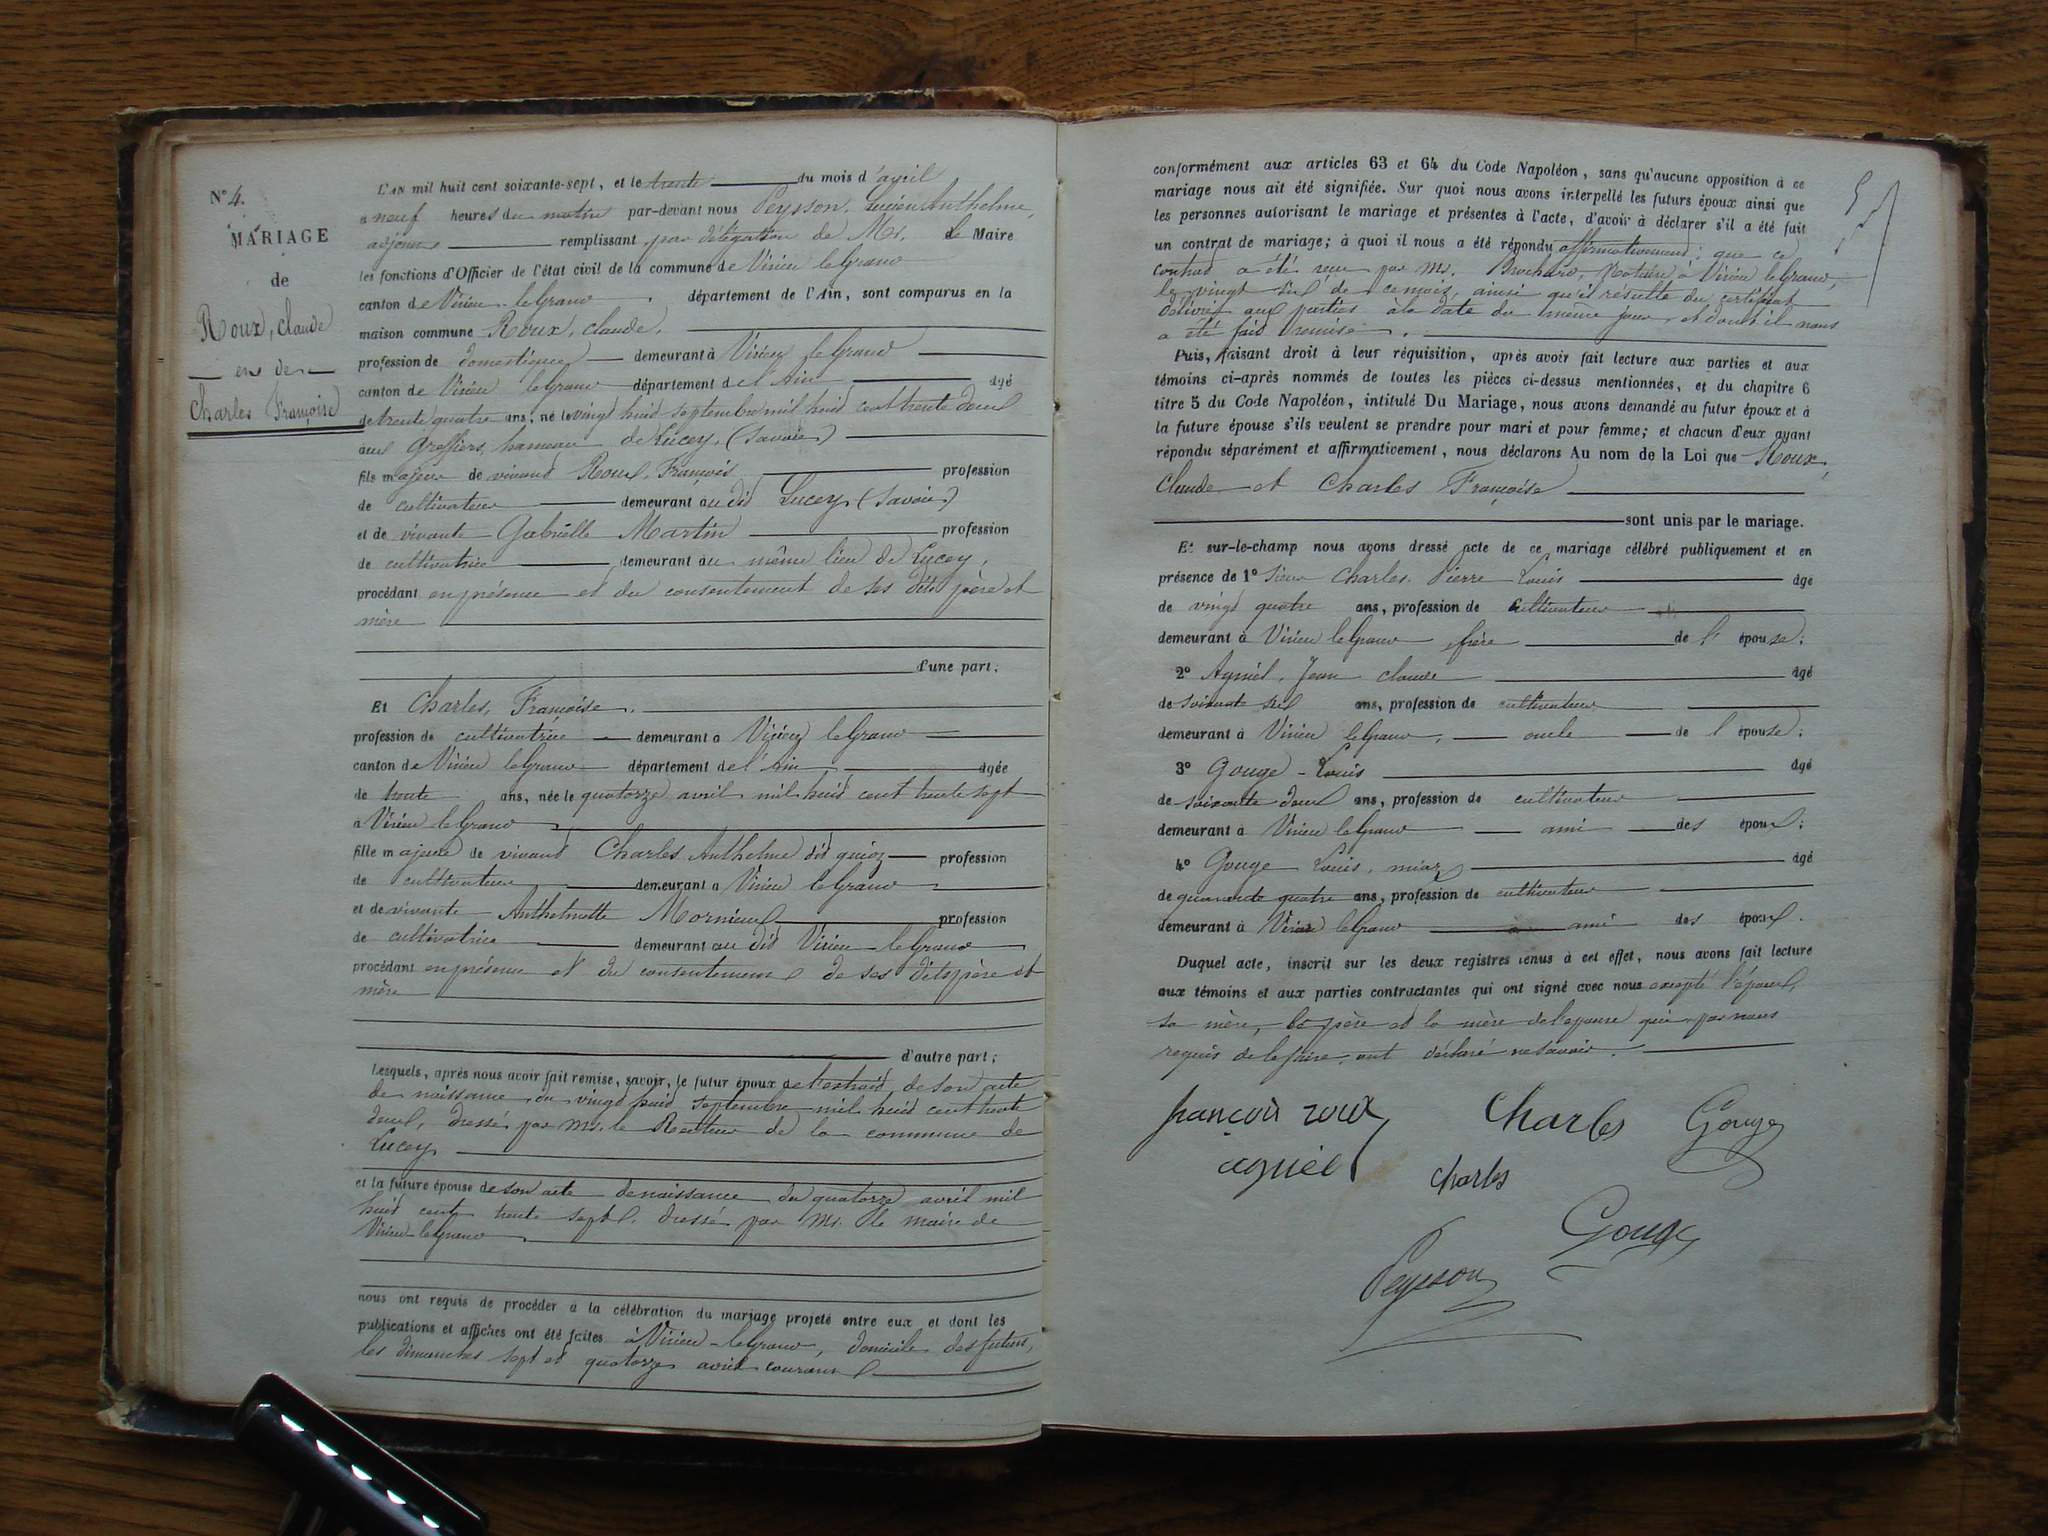 N° 4.
MARIAGE
de
Roux, Claude
et de
Charles Françoise
L'AN mil huit cent soixante-sept, et le trente du mois d'avril
à neuf heures du matin par-devant nous Peysson, Lucien Anthelme,
adjoint remplissant par délégation de Mr. le Maire
les fonctions d'Officier de l'état civil de la commune de Virieu le Grand
canton de Virieu le Grand, département de l'Ain, sont comparus en la
maison commune Roux, Claude,
profession de domestique demeurant à Virieu le Grand
canton de Virieu le Grand département de l'Ain âgé
de trente quatre ans, né le vingt huit septembre mil huit cent trente deux
aux hameau de Lucey, (Savoie)
fils majeur de vivant Roux, François profession
de cultivateur demeurant au dit Lucey, (Savoie)
et de vivante Gabrielle Martin profession
de cultivatrice demeurant au même lieu de Lucey,
procédant en présence et du consentement de ses dits père et
mère
d'une part;
Et Charles, Françoise,
profession de cultivatrice demeurant à Virieu le Grand
canton de Virieu le Grand département de l'Ain âgée
de trente ans, née le quatorze avril mil huit cent trente sept
à Virieu le Grand
fille majeure de vivant Charles Anthelme dit profession
de cultivateur demeurant à Virieu le Grand
et de vivante Anthelmette Mornieux profession
de cultivatrice demeurant au dit Virieu-le Grand
procédant en présence et du consentement de ses dits père et
mère
d'autre part;
Lesquels, après nous avoir fait remise, savoir, le futur époux de l'extrait de son acte
de naissance du vingt huit septembre mil huit cent trente
deux, dressé par Mr. le Recteur de la commune de
Lucey,
et la future épouse de son acte de naissance du quatorze avril mil
huit cent trente sept, dressé par Mr. le maire de
Virieu-le Grand
nous ont requis de procéder à la célébration du mariage projeté entre eux et dont les
publications et affiches ont été faites à Virieu-le Grand, domicile des futurs,
les dimanches sept et quatorze avril courant
conformément aux articles 63 et 64 du Code Napoléon, sans qu'aucune opposition à ce
mariage nous ait été signifiée. Sur quoi nous avons interpellé les futurs époux ainsi que
les personnes autorisant le mariage et présentes à l'acte, d'avoir à déclarer s'il a été fait
un contrat de mariage; à quoi il nous a été répondu affirmativement; que ce
contrat a été reçu par Mr. Notaire à Virieu le Grand,
le vingt six de ce mois, ainsi qu'il résulte du certificat
délivré aux parties à la date du même jour, et dont il nous
a été fait remise.
Puis, faisant droit à leur réquisition, après avoir fait lecture aux parties et aux
témoins ci-après nommés de toutes les pièces ci-dessus mentionnées, et du chapitre 6
titre 5 du Code Napoléon, intitulé Du Mariage, nous avons demandé au futur époux et à
la future épouse s'ils veulent se prendre pour mari et pour femme; et chacun d'eux ayant
répondu séparément et affirmativement, nous déclarons Au nom de la Loi que Roux,
Claude et Charles Françoise
sont unis par le mariage.
Et sur-le-champ nous avons dressé acte de ce mariage célébré publiquement et en
présence de 1° Sieur Charles, Pierre Louis âgé
de vingt quatre ans, profession de cultivateur
demeurant à Virieu le Grand frère de l'épouse;
2° Aguiel, Jean Claude âgé
de soixante six ans, profession de cultivateur
demeurant à Virieu le Grand, oncle de l'épouse;
3° Gouge Louis âgé
de soixante deux ans, profession de cultivateur
demeurant à Virieu le Grand ami des époux;
4° Gouge Louis, âgé
de quarante quatre ans, profession de cultivateur
demeurant à Virieu le Grand ami des époux.
Duquel acte, inscrit sur les deux registres tenus à cet effet, nous avons fait lecture
aux témoins et aux parties contractantes qui ont signé avec nous excepté l'époux,
sa mère, le père et la mère de l'épouse qui, par nous
requis de le faire, ont déclaré ne savoir.
françois roux Charles Gouge
aguiel charles
Gouge
Peysson